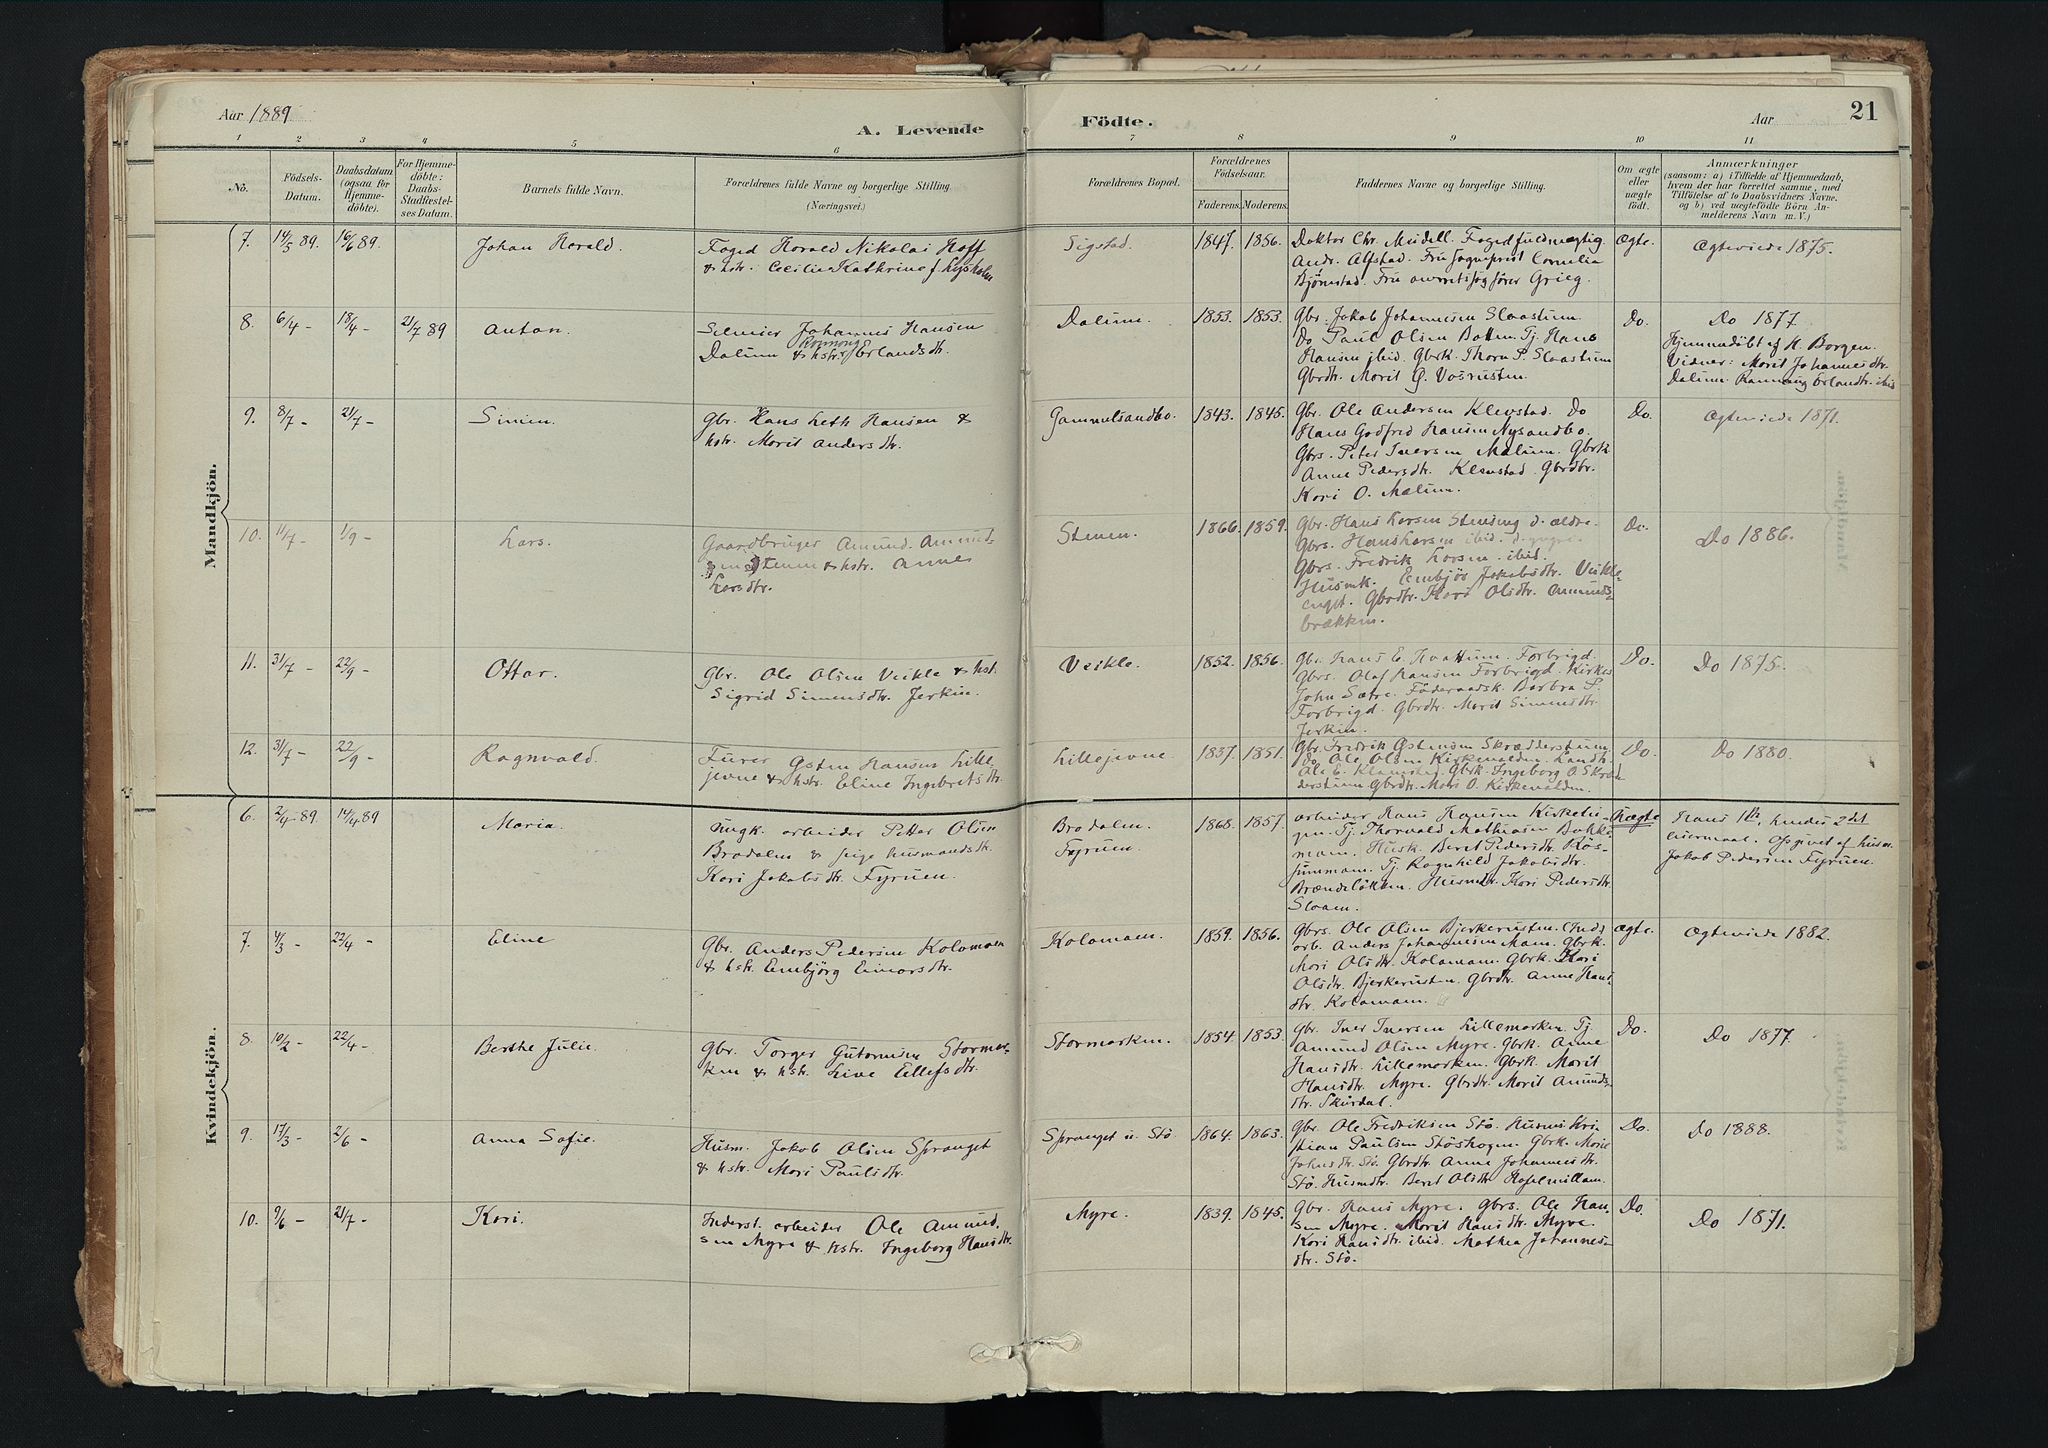 Aar 1889.
A. Levende Födte.
Aar
21
1 2 3 4 5 6 7 8 9 10 11
No.
Födsels-
Datum.
Daabsdatum
(ogsaa for
Hjemme-
döbte).
For Hjemme-
döbte:
Daabs-
Stadfæstel-
ses Datum.
Barnets fulde Navn.
Forældrenes fulde Navne og borgerlige Stilling.
(Næringsvei.)
Forældrenes Bopæl.
Forældrenes
Födselsaar.
Faderens. Moderens.
Faddernes Navne og borgerlige Stilling.
Om ægte
eller
uægte
födt.
Anmærkninger
(saasom: a) i Tilfælde af Hjemmedaab,
hvem der har forrettet samme, med
Tilföielse af to Daabsvidners Navne.
og b) ved uægtefödte Börn An-
melderens Navn m. V.)
Mandkjön.
7. 14/5 89. 16/6 89. Johan Harald.
Foged Harald Nikolai Hoff
& hstr. Cecilie Kathrine f. Lysholm
Sigstad. 1847. 1856.
Doktor Chr. Meidell. Fogedfuldmægtig
Andr. Alfstad. Fru sogneprest Cornelia
Bjørnstad. Fru overretssagfører Grieg.
Ægte. Ægteviede 1875.
8. 6/4 - 18/4 - 21/7 89 Anton.
Johannes Hansen
Dalum & hstr. Ronnong Erlandsdtr.
Dalum. 1853. 1853.
Gbr. Jakob Johannesen Slaastum.
Do Paul Olsen Botten. Tj. Hans
Hansen ibid. Gbrk. Thora P. Slaastum
Gbrdtr. Marit Ø.
Do. Do 1877
Hjemmedøbt af H. Borgen.
Vidner: Marit Johannesdtr.
Dalum. Ronnong Erlandsdtr. ibid
9. 8/7 - 21/7 - Simen.
Gbr. Hans Leth Hansen &
hstr. Marit Andersdtr.
Gammelsandbo. 1843. 1845.
Gbr. Ole Andersen Klevstad. Do
Hans Godfred Hansen Nysandbo.
Gbrs. Peter Iversen Mælum. Gbrk.
Anne Pedersdtr. Klevstad. Gbrdtr.
Kari O. Mælum.
Do. Ægteviede 1871.
10. 11/7 - 1/9 - Lars.
Gaardbruger Amund Amund-
sen Stenen & hstr. Anne
Larsdtr.
Stenen. 1866. 1859.
Gbr. Hans Larsen Stenseng d. ældre.
Gbrs. Hans Larsen ibid. d. yngre.
Gbrs. Fredrik Larsen ibid.
Husmk. Embjør Jakobsdtr. Veikle-
enget. Gbrdtr. Kari Olsdtr. Amunds-
brækken.
Do. Do 1886.
11. 31/7 - 22/9 - Ottar.
Gbr. Ole Olsen Veikle & hst.
Sigrid Simensdtr. Jerkin.
Veikle. 1852. 1856.
Gbr. Hans E. Hvattum. Forbrigd.
Gbrs. Olaf Hansen Forbrigd. Kirkes.
John Sætre. Föderaadsk. Barbra P.
Forbrigd. Gbrdtr. Marit Simensdtr.
Jerkin.
Do. Do 1875.
12. 31/7 - 22/9 - Ragnvald.
Furer Østen Hansen Lille-
jevne & hstr. Eline Ingebretsdtr.
Lillejevne. 1837. 1851.
Gbr. Fredrik Østensen Skrædderstuen
Do Ole Olsen Kirkevolden. Landh.
Ole E. Klæmstad. Gbrk. Ingeborg O. Skræd-
derstuen Gbrdtr. Mari O. Kirkevolden.
Do. Do 1880.
Kvindekjön.
6. 2/4 - 89. 14/4 89 Maria.
Ungk. arbeider Petter Olsen
Bradalen & pige husmandsdtr.
Kari Jakobsdtr. Fyruen.
Bradalen.
Fyruen.
1868. 1857.
arbeider Hans Hansen Kirketei-
gen. Tj. Thorvald Mathiasen Bakke-
moen. Husk. Beret Pedersdtr. Røs-
simmoen. Tj. Ragnhild Jakobsdtr.
Brændeløkken. Husmdtr. Kari Pedersdtr.
Sloaen.
Uægte Hans 1ste, hendes 2det
leiermaal. Opgivet af husm.
Jakob Pedersen Fyruen.
7. 4/3 - 22/4 - Eline
Gbr. Anders Pedersen Kolomoen
& hstr. Embjörg Einarsdtr.
Kolomoen. 1859. 1856.
Gbrs. Ole Olsen Bjerkerusten. (Ind)
arb. Anders Johannesen Moen. Gbrk.
Mari Olsdtr. Kolomoen. Gbrk. Kari
Olsdtr. Bjerkerusten. Gbrdtr. Anne Hans-
dtr. Kolomoen.
Ægte. Ægteviede 1882.
8. 10/2 - 22/4 - Berthe Julie.
Gbr. Torger Gutormsen Stormor-
ken & hstr. Live Ellefsdtr.
Stormorken. 1854. 1853.
Gbr. Iver Iversen Lillemorken. Tj.
Amund Olsen Myre. Gbrk. Anne
Hansdtr. Lillemorken. Gbrk. Marit
Hansdtr. Myre. Gbrdtr. Marit Amunds-
dtr. Skurdal.
Do. Do 1877.
9. 17/3 - 2/6 - Anna Sofie.
Husm. Jakob Olsen Spranget
& hstr. Mari Paulsdtr.
Spranget u. Stö 1864. 1863.
Gbr. Ole Fredriksen Stö. Husms. Kri
stian Paulsen Stöshagen. Gbrk. Marie
Johnsdtr. Stö. Gbrdtr. Anne Johannesdtr.
Stö. Husmdtr. Beret Olsdtr
Do. Do 1888.
10. 9/6 - 21/7 - Kari.
Inderst. arbeider Ole Amund.
sen Myre & hstr. Ingeborg Hansdtr.
Myre. 1839. 1845.
Gbr. Hans Myre. Gbrs. Ole Han-
sen Myre. Marit Hansdtr. Myre.
Kari Hansdtr. ibid. Mathea Johannes-
dtr. Stö.
Do. Do 1871.